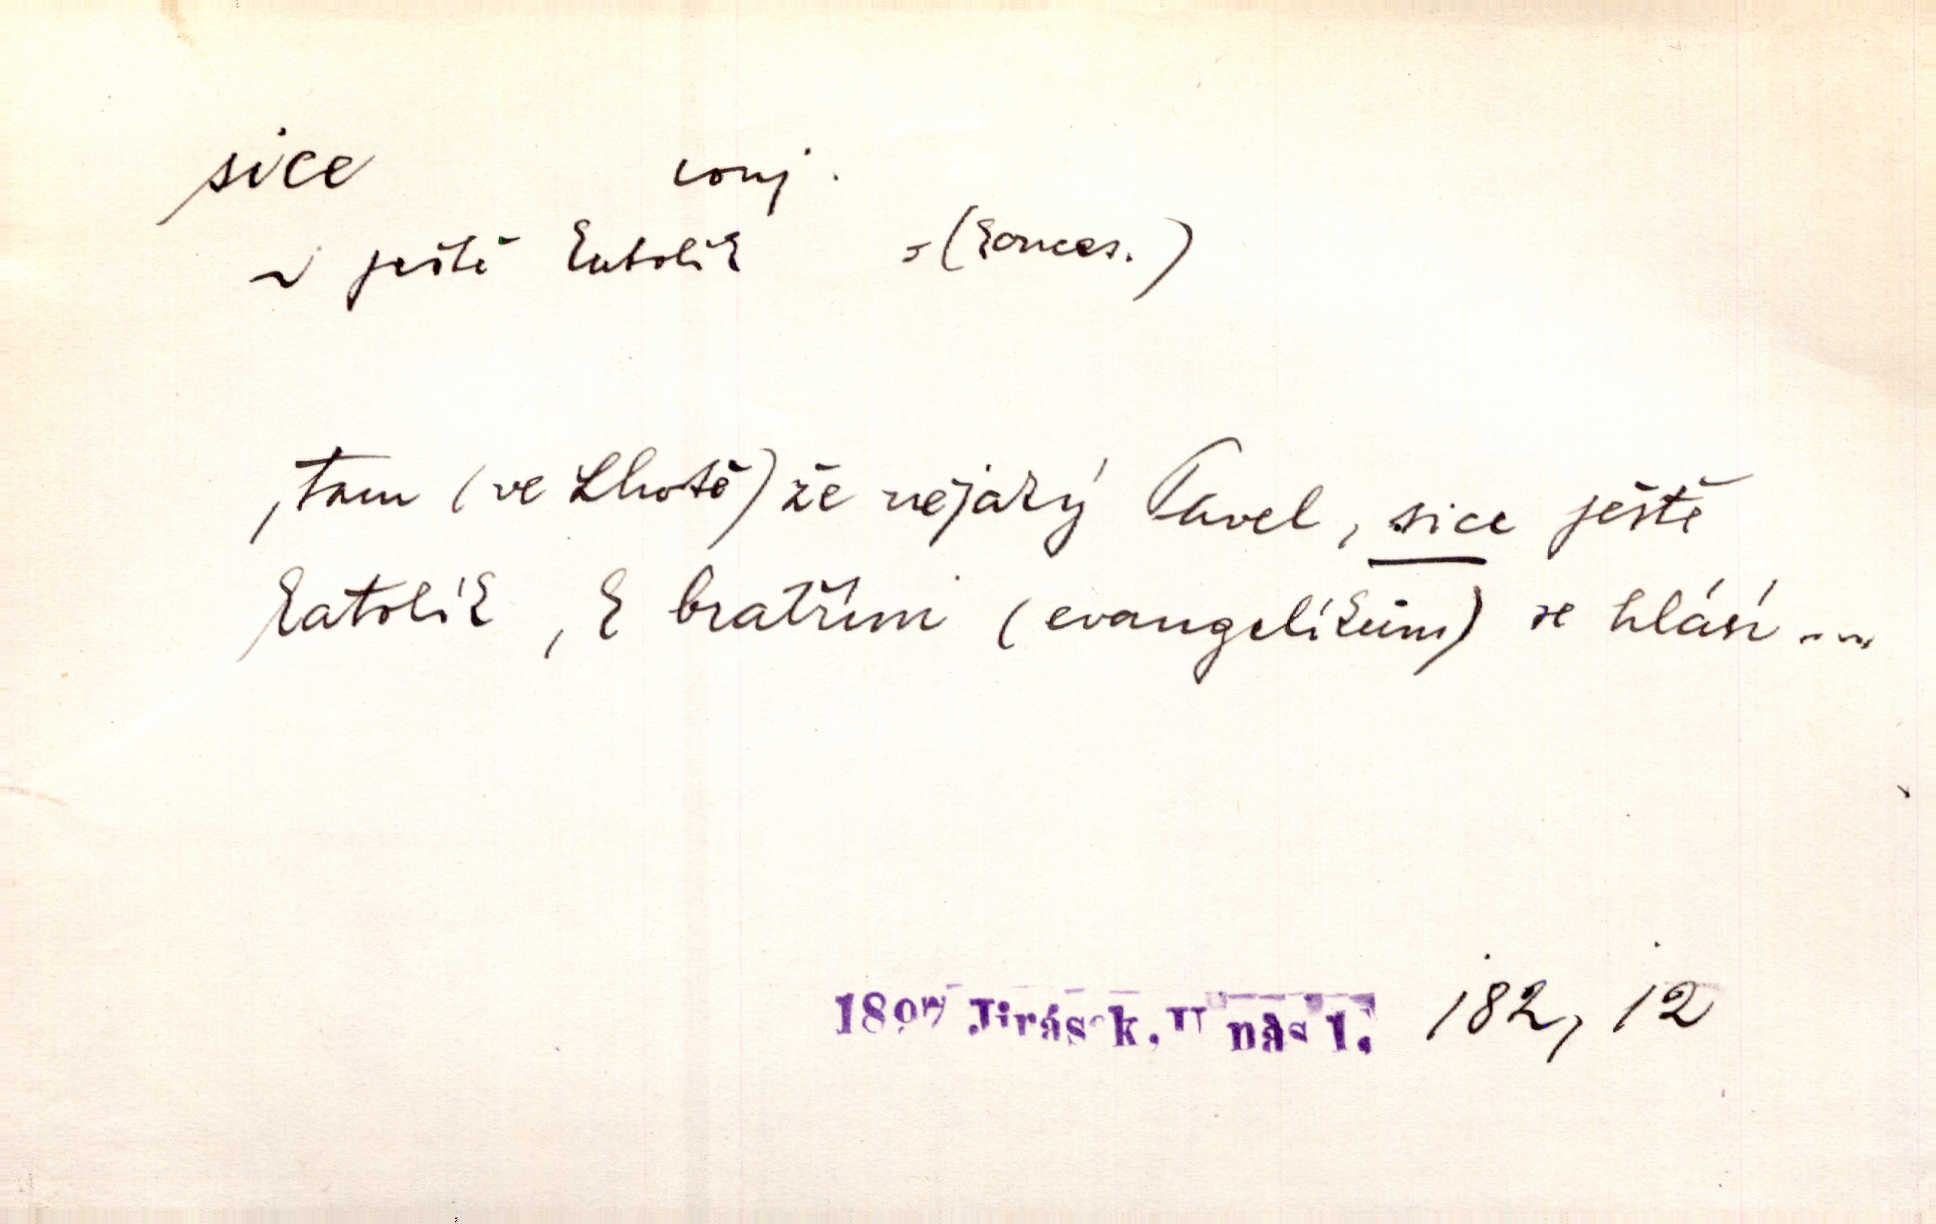 sice conj.
~ ještě katolík = (konces.)
, tam (ve Lhotě) že nějaký Pavel, sice ještě
katolík, k bratřím (evangelíkům) se hlásí ....
1897 Jirásek. U nás 1. 182, 12